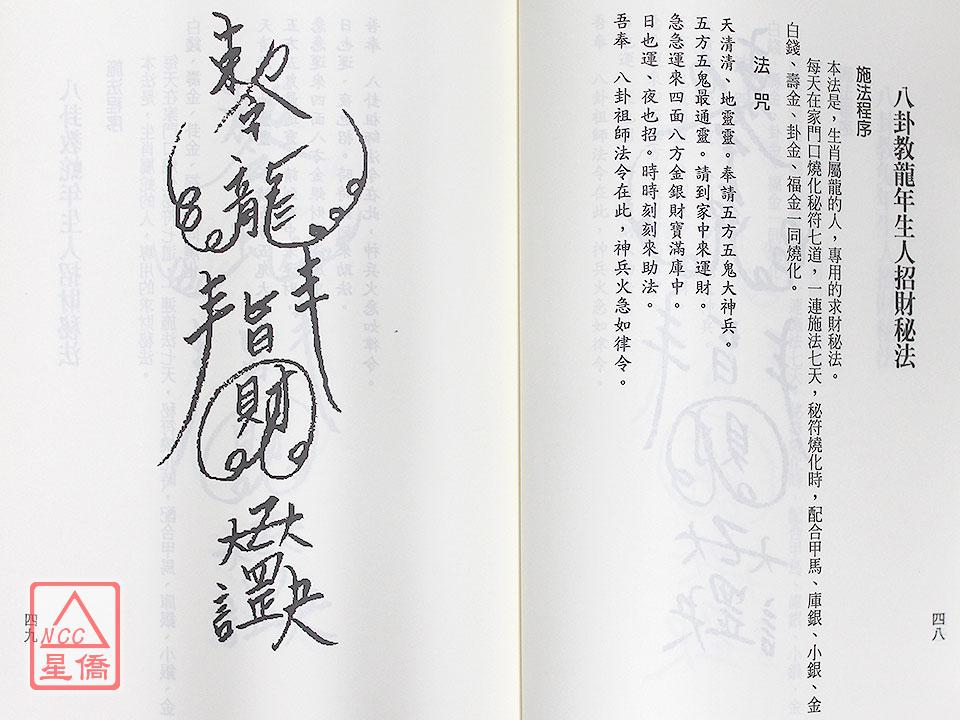 八卦教龍年生人招財秘法
施法程序
本法是，生肖屬龍的人，專用的求財秘法。
每天在家門口燒化秘符七道，一連施法七天，秘符燒化時，配合甲馬、庫銀、小銀、金
白錢、壽金、卦金、福金一同燒化。
法咒
天清清、地靈靈。奉請五方五鬼大神兵。
五方五鬼最通靈。請到家中來運財。
急急運來四面八方金銀財寶滿庫中。
日也運、夜也招。時時刻刻來助法。
吾奉 八卦祖師法令在此，神兵火急如律令。
四八
龍
旨
財
四九
NCC
星僑